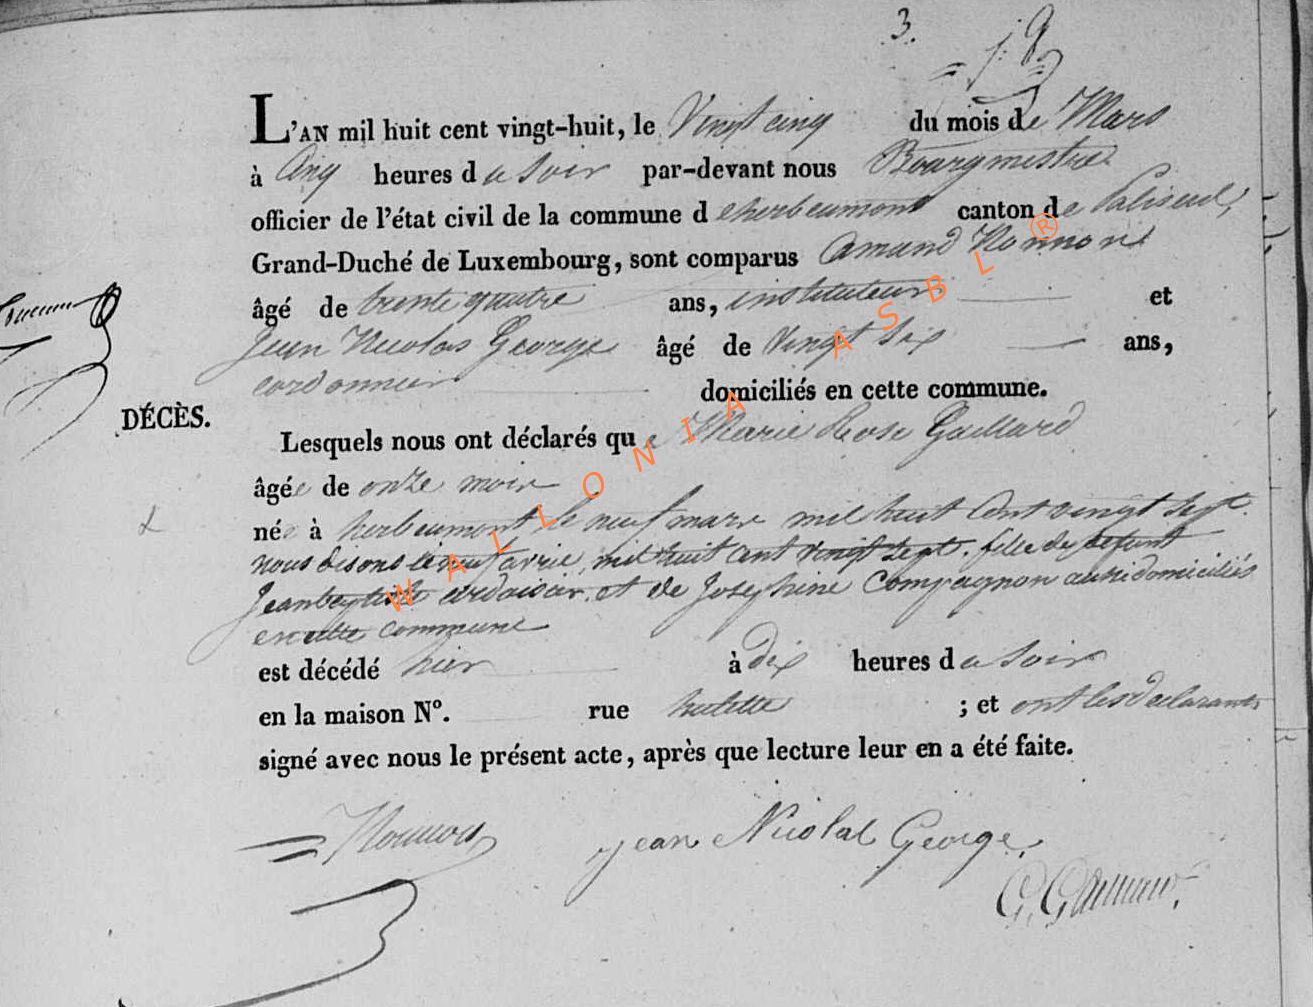 3.
L'AN mil huit cent vingt-huit, le Vingt cinq du mois de Mars
à Cinq heures du Soir par-devant nous Bourgmestre
officier de l'état civil de la commune d'herbeumont canton de Paliseul,
Grand-Duché de Luxembourg, sont comparus Amand Nonnon
âgé de trente quatre ans, instituteur et
Jean Nicolas George âgé de Vingt Six ans,
cordonnier domiciliés en cette commune.
DÉCÈS.
Lesquels nous ont déclarés que Marie Rose Gaillard
âgée de onze mois
née à herbeumont le neuf mars mil huit Cent vingt Sept.
nous disons le neuf avril mil huit cent vingt Sept. fille de defunt
Jeanbaptiste ardoisier et de Josephine Compagnon aussi domiciliés
en cette commune
est décédé hier à dix heures du Soir
en la maison N°. rue hulette ; et ont les declarants
signé avec nous le présent acte, après que lecture leur en a été faite.
Nonnon jean Nicolas George.
WALLONIA ASBL ®